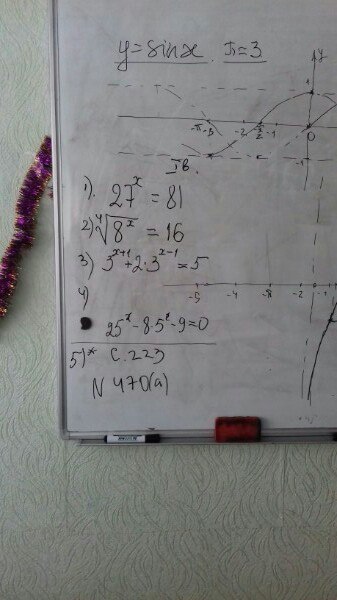 y=sinx. π≈3
y
1
-π -3 -2 -π/2 -1 0
-1
I в.
1). 27^x = 81
2) ⁴√8^x = 16
3) 3^(x+1)+2·3^(x-1)=5
4)
25^x-8·5^x-9=0
-4 -2 -1
5)* с. 223
N 470(а)